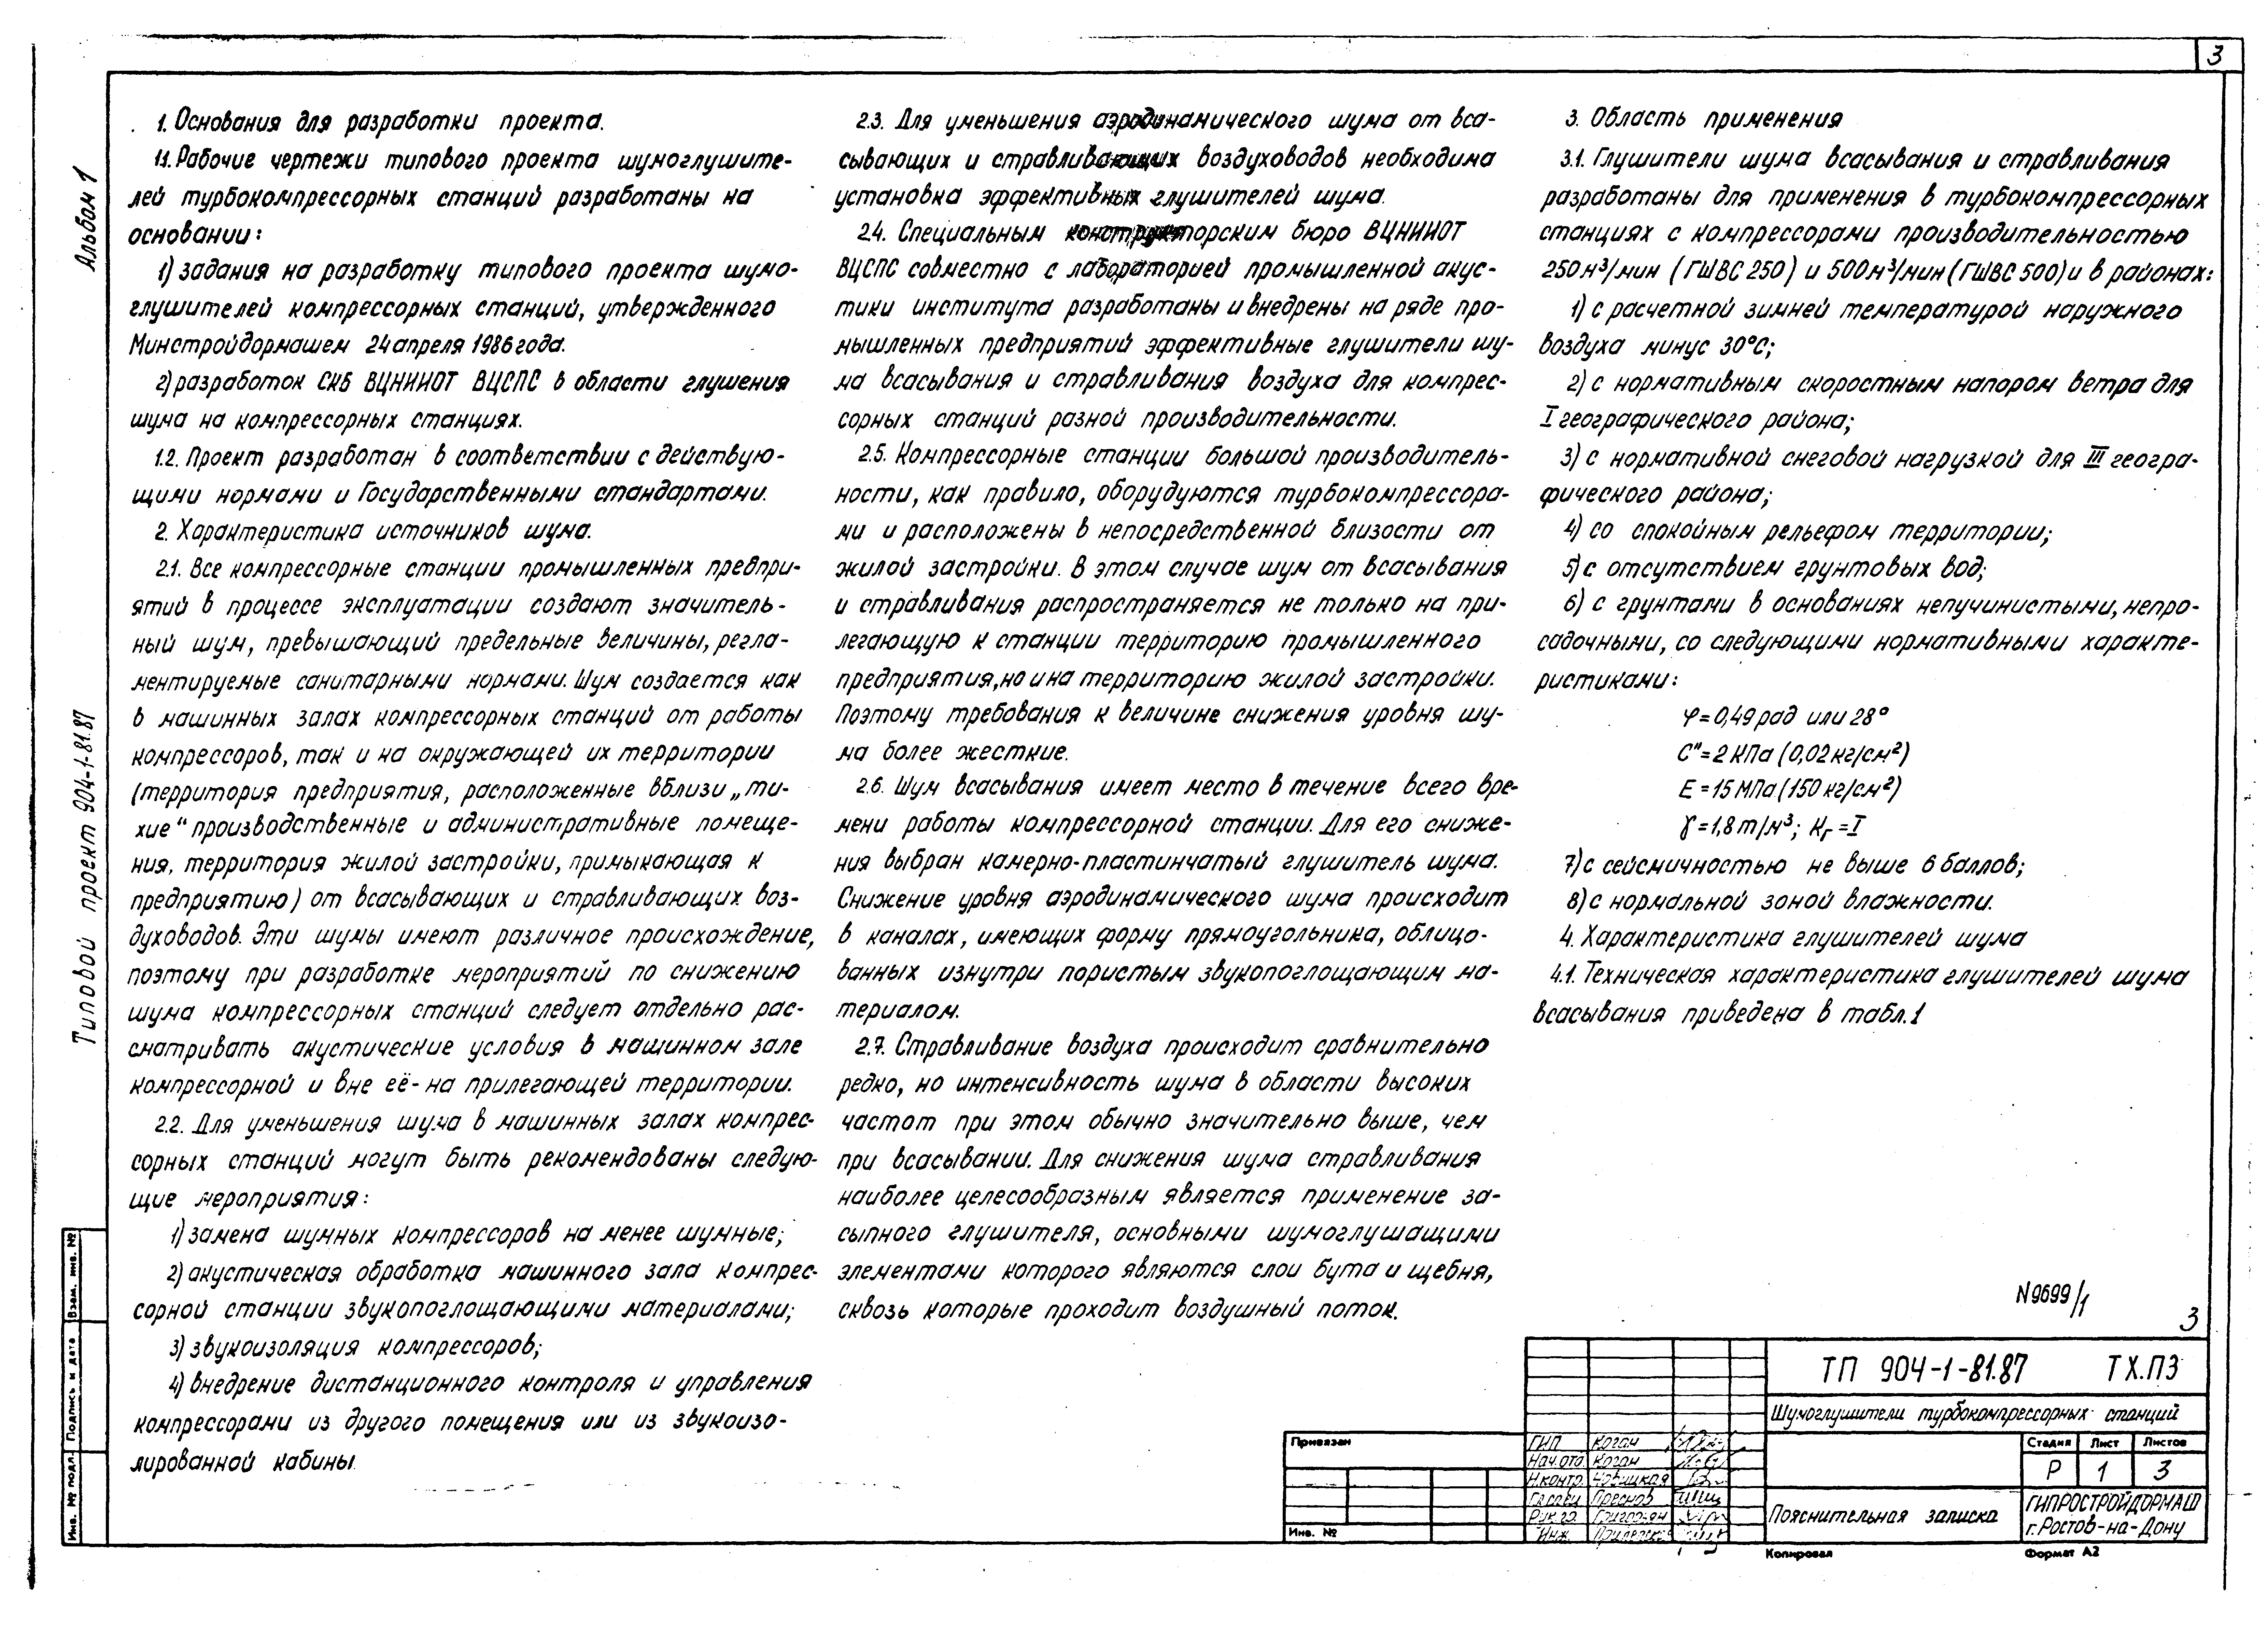 3
Альбом 1
Типовой проект 904-1-81.87
1. Основания для разработки проекта.
1.1. Рабочие чертежи типового проекта шумоглушите-
лей турбокомпрессорных станций разработаны на
основании:
1) задания на разработку типового проекта шумо-
глушителей компрессорных станций, утвержденного
Минстройдормашем 24 апреля 1986 года.
2) разработок СКБ ВЦНИИОТ ВЦСПС в области глушения
шума на компрессорных станциях.
1.2. Проект разработан в соответствии с действую-
щими нормами и Государственными стандартами.
2. Характеристика источников шума.
2.1. Все компрессорные станции промышленных предпри-
ятий в процессе эксплуатации создают значитель-
ный шум, превышающий предельные величины, регла-
ментируемые санитарными нормами. Шум создается как
в машинных залах компрессорных станций от работы
компрессоров, так и на окружающей их территории
(территория предприятия, расположенные вблизи „ти-
хие“ производственные и административные помеще-
ния, территория жилой застройки, примыкающая к
предприятию) от всасывающих и стравливающих воз-
духоводов. Эти шумы имеют различное происхождение,
поэтому при разработке мероприятий по снижению
шума компрессорных станций следует отдельно рас-
сматривать акустические условия в машинном зале
компрессорной и вне её - на прилегающей территории.
2.2. Для уменьшения шума в машинных залах компрес-
сорных станций могут быть рекомендованы следую-
щие мероприятия:
1) замена шумных компрессоров на менее шумные;
2) акустическая обработка машинного зала компрес-
сорной станции звукопоглощающими материалами;
3) звукоизоляция компрессоров;
4) внедрение дистанционного контроля и управления
компрессорами из другого помещения или из звукоизо-
лированной кабины
2.3. Для уменьшения аэродинамического шума от вса-
сывающих и стравливающих воздуховодов необходима
установка эффективных глушителей шума.
2.4. Специальным конструкторским бюро ВЦНИИОТ
ВЦСПС совместно с лабораторией промышленной акус-
тики института разработаны и внедрены на ряде про-
мышленных предприятий эффективные глушители шу-
ма всасывания и стравливания воздуха для компрес-
сорных станций разной производительности.
2.5. Компрессорные станции большой производитель-
ности, как правило, оборудуются турбокомпрессора-
ми и расположены в непосредственной близости от
жилой застройки. В этом случае шум от всасывания
и стравливания распространяется не только на при-
легающую к станции территорию промышленного
предприятия, но и на территорию жилой застройки.
Поэтому требования к величине снижения уровня шу-
ма более жесткие.
2.6. Шум всасывания имеет место в течение всего вре-
мени работы компрессорной станции. Для его сниже-
ния выбран камерно-пластинчатый глушитель шума.
Снижение уровня аэродинамического шума происходит
в каналах, имеющих форму прямоугольника, облицо-
ванных изнутри пористым звукопоглощающим ма-
териалом.
2.7. Стравливание воздуха происходит сравнительно
редко, но интенсивность шума в области высоких
частот при этом обычно значительно выше, чем
при всасывании. Для снижения шума стравливания
наиболее целесообразным является применение за-
сыпного глушителя, основными шумоглушащими
элементами которого являются слои бута и щебня,
сквозь которые проходит воздушный поток.
3. Область применения
3.1. Глушители шума всасывания и стравливания
разработаны для применения в турбокомпрессорных
станциях с компрессорами производительностью
250 м³/мин (ГШВС 250) и 500 м³/мин (ГШВС 500) и в районах:
1) с расчетной зимней температурой наружного
воздуха минус 30°С;
2) с нормативным скоростным напором ветра для
I географического района;
3) с нормативной снеговой нагрузкой для III геогра-
фического района;
4) со спокойным рельефом территории;
5) с отсутствием грунтовых вод;
6) с грунтами в основаниях непучинистыми, непро-
садочными, со следующими нормативными характе-
ристиками:
φ = 0,49 рад или 28°
С" = 2 КПа (0,02 кг/см²)
Е = 15 МПа (150 кг/см²)
γ = 1,8 т/м³; Кг = I
7) с сейсмичностью не выше 6 баллов;
8) с нормальной зоной влажности.
4. Характеристика глушителей шума
4.1. Техническая характеристика глушителей шума
всасывания приведена в табл. 1
N 9699/1
3
ТП 904-1-81.87 ТХ.ПЗ
Шумоглушители турбокомпрессорных станций
Стадия Лист Листов
Р 1 3
Пояснительная записка
ГИПРОСТРОЙДОРМАШ
г. Ростов-на-Дону
Привязан
Инв. №
ГИП Коган
Нач.отд. Коган
Н.контр. Новицкая
Гл.спец. Преснов
Рук.гр. Григорьян
Инж.
Копировал
Формат А2
Взам. инв. №
Подпись и дата
Инв. № подл.